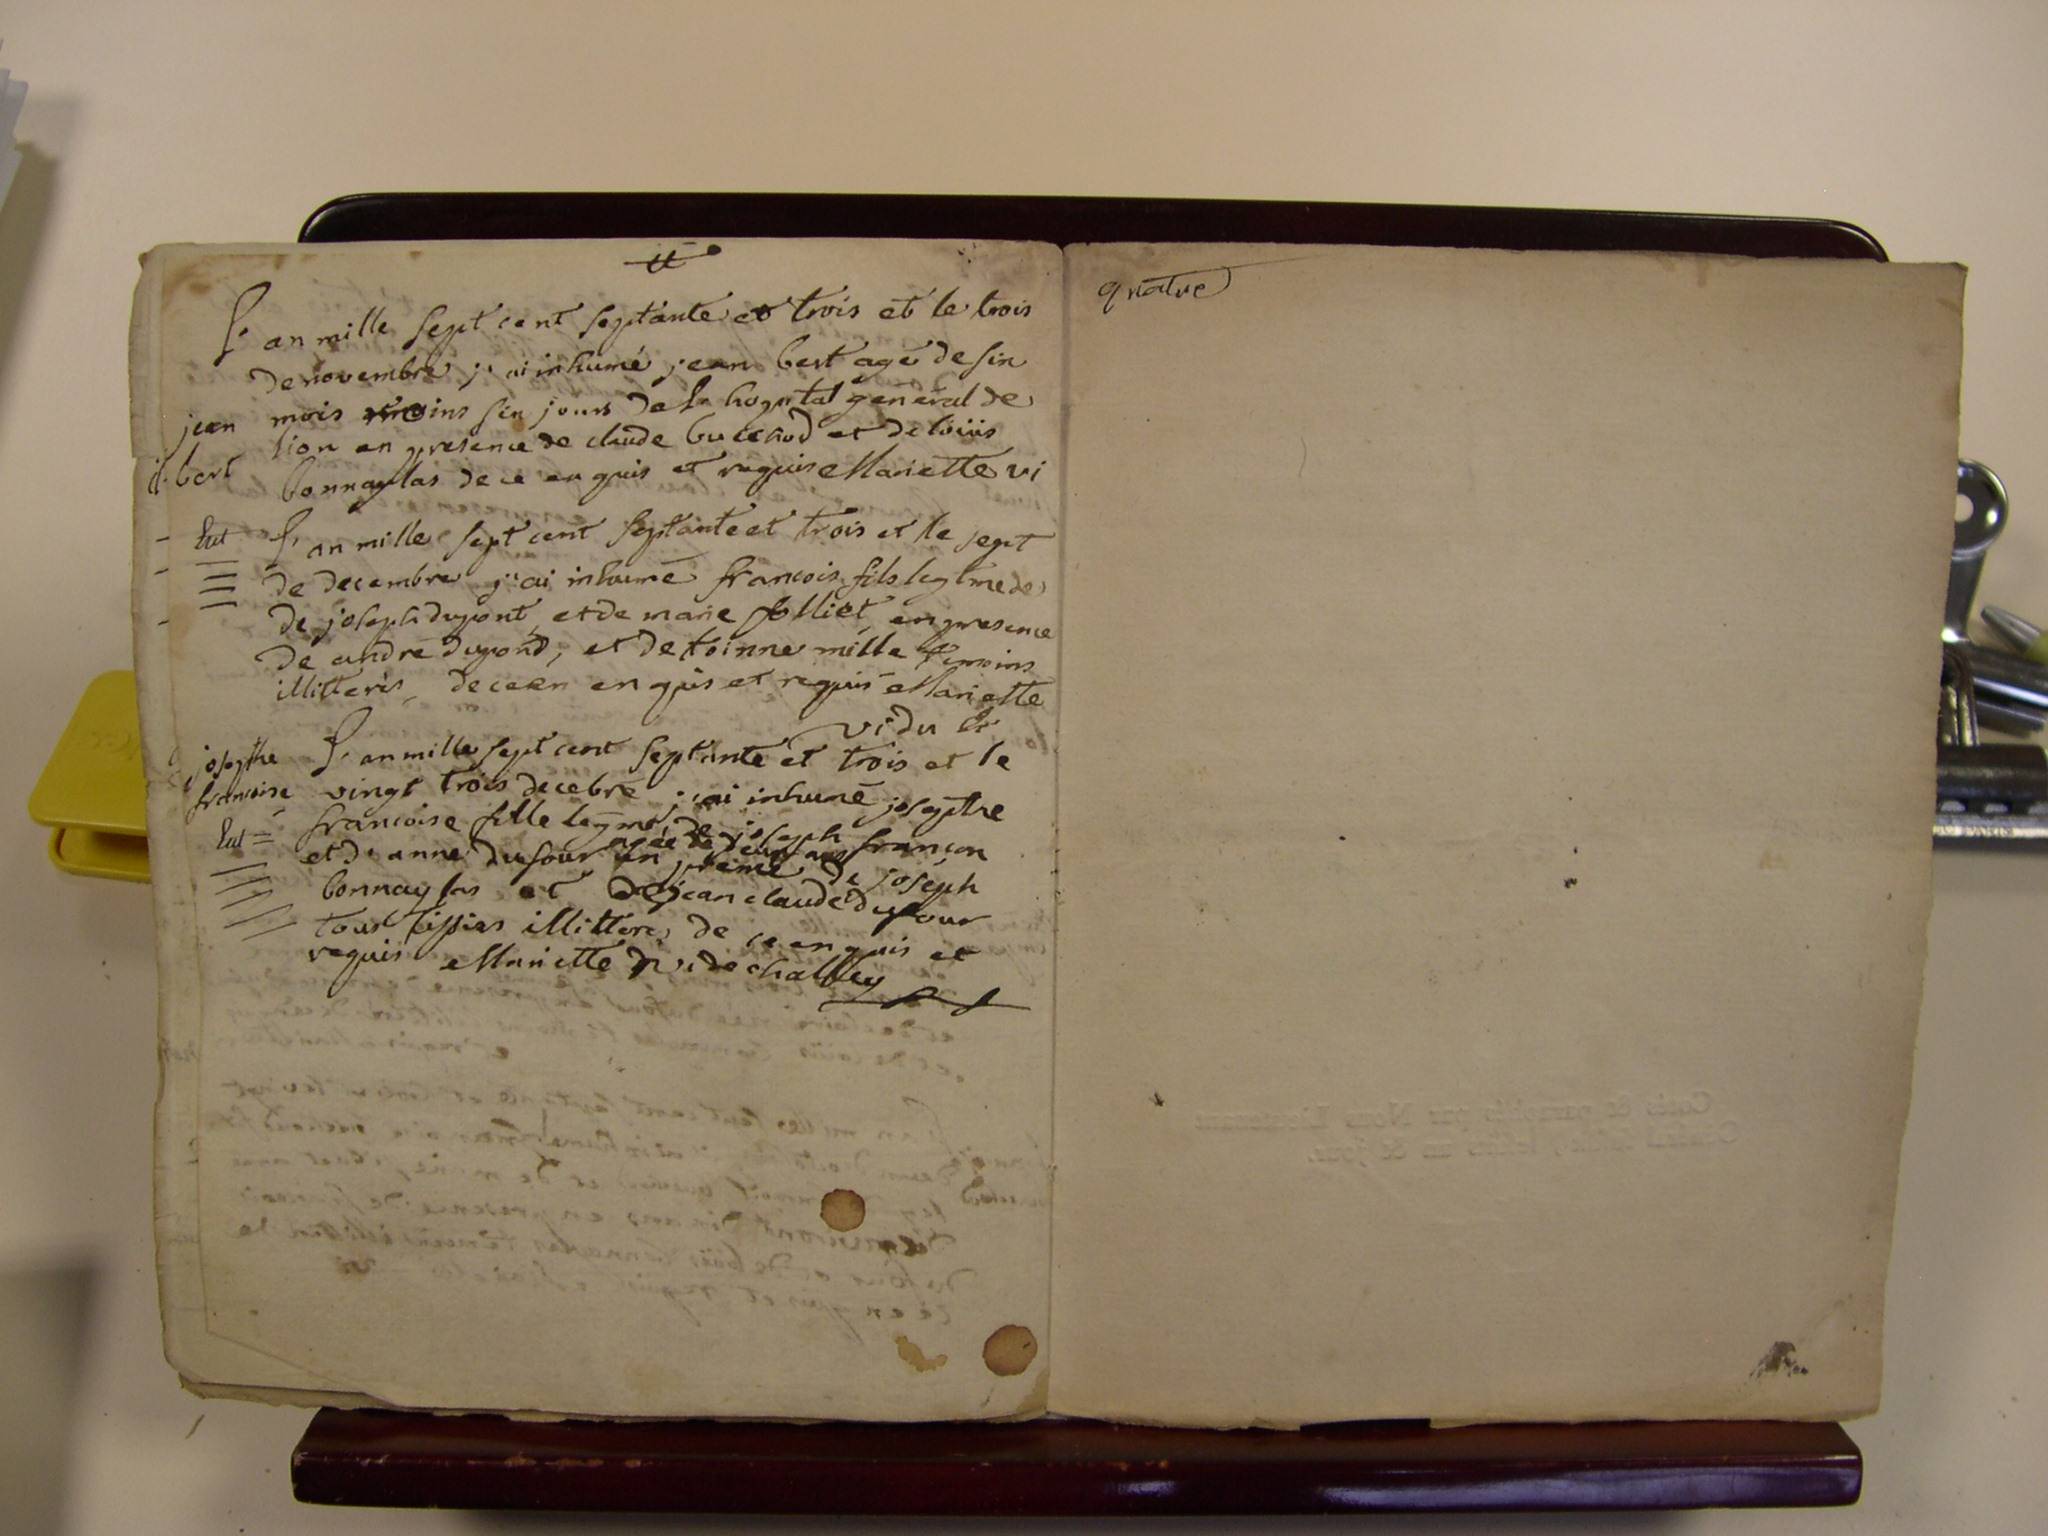 L'an mille sept cent septante et trois et le trois
de novembre j'ai inhumé jean bert agé de six
jean mois moins six jours de L'hopital général de
bert lion en presence de claude buichod et de loüis
bonnaylas de ce enquis et requis Mariette vi
L'an mille sept cent septante et trois et le sept
de decembre j'ai inhumé francois fils legtme de
de joseph dupont, et de marie folliet, en presence
de andré dupond, et de toinne mille temoins
illitteris, de ce en quis et requis Mariette
vi du
josepthe L'an mille sept cent septante et trois et le
francoise vingt trois decebre j'ai inhumé josepthe
francoise fille legme de joseph francon
agée de deux ans
et d'anne dufour en de joseph
bonnaylas et de jean claude dufour
tous illitteré, de ce enquis et
requis Mariette vi de challey
quatre